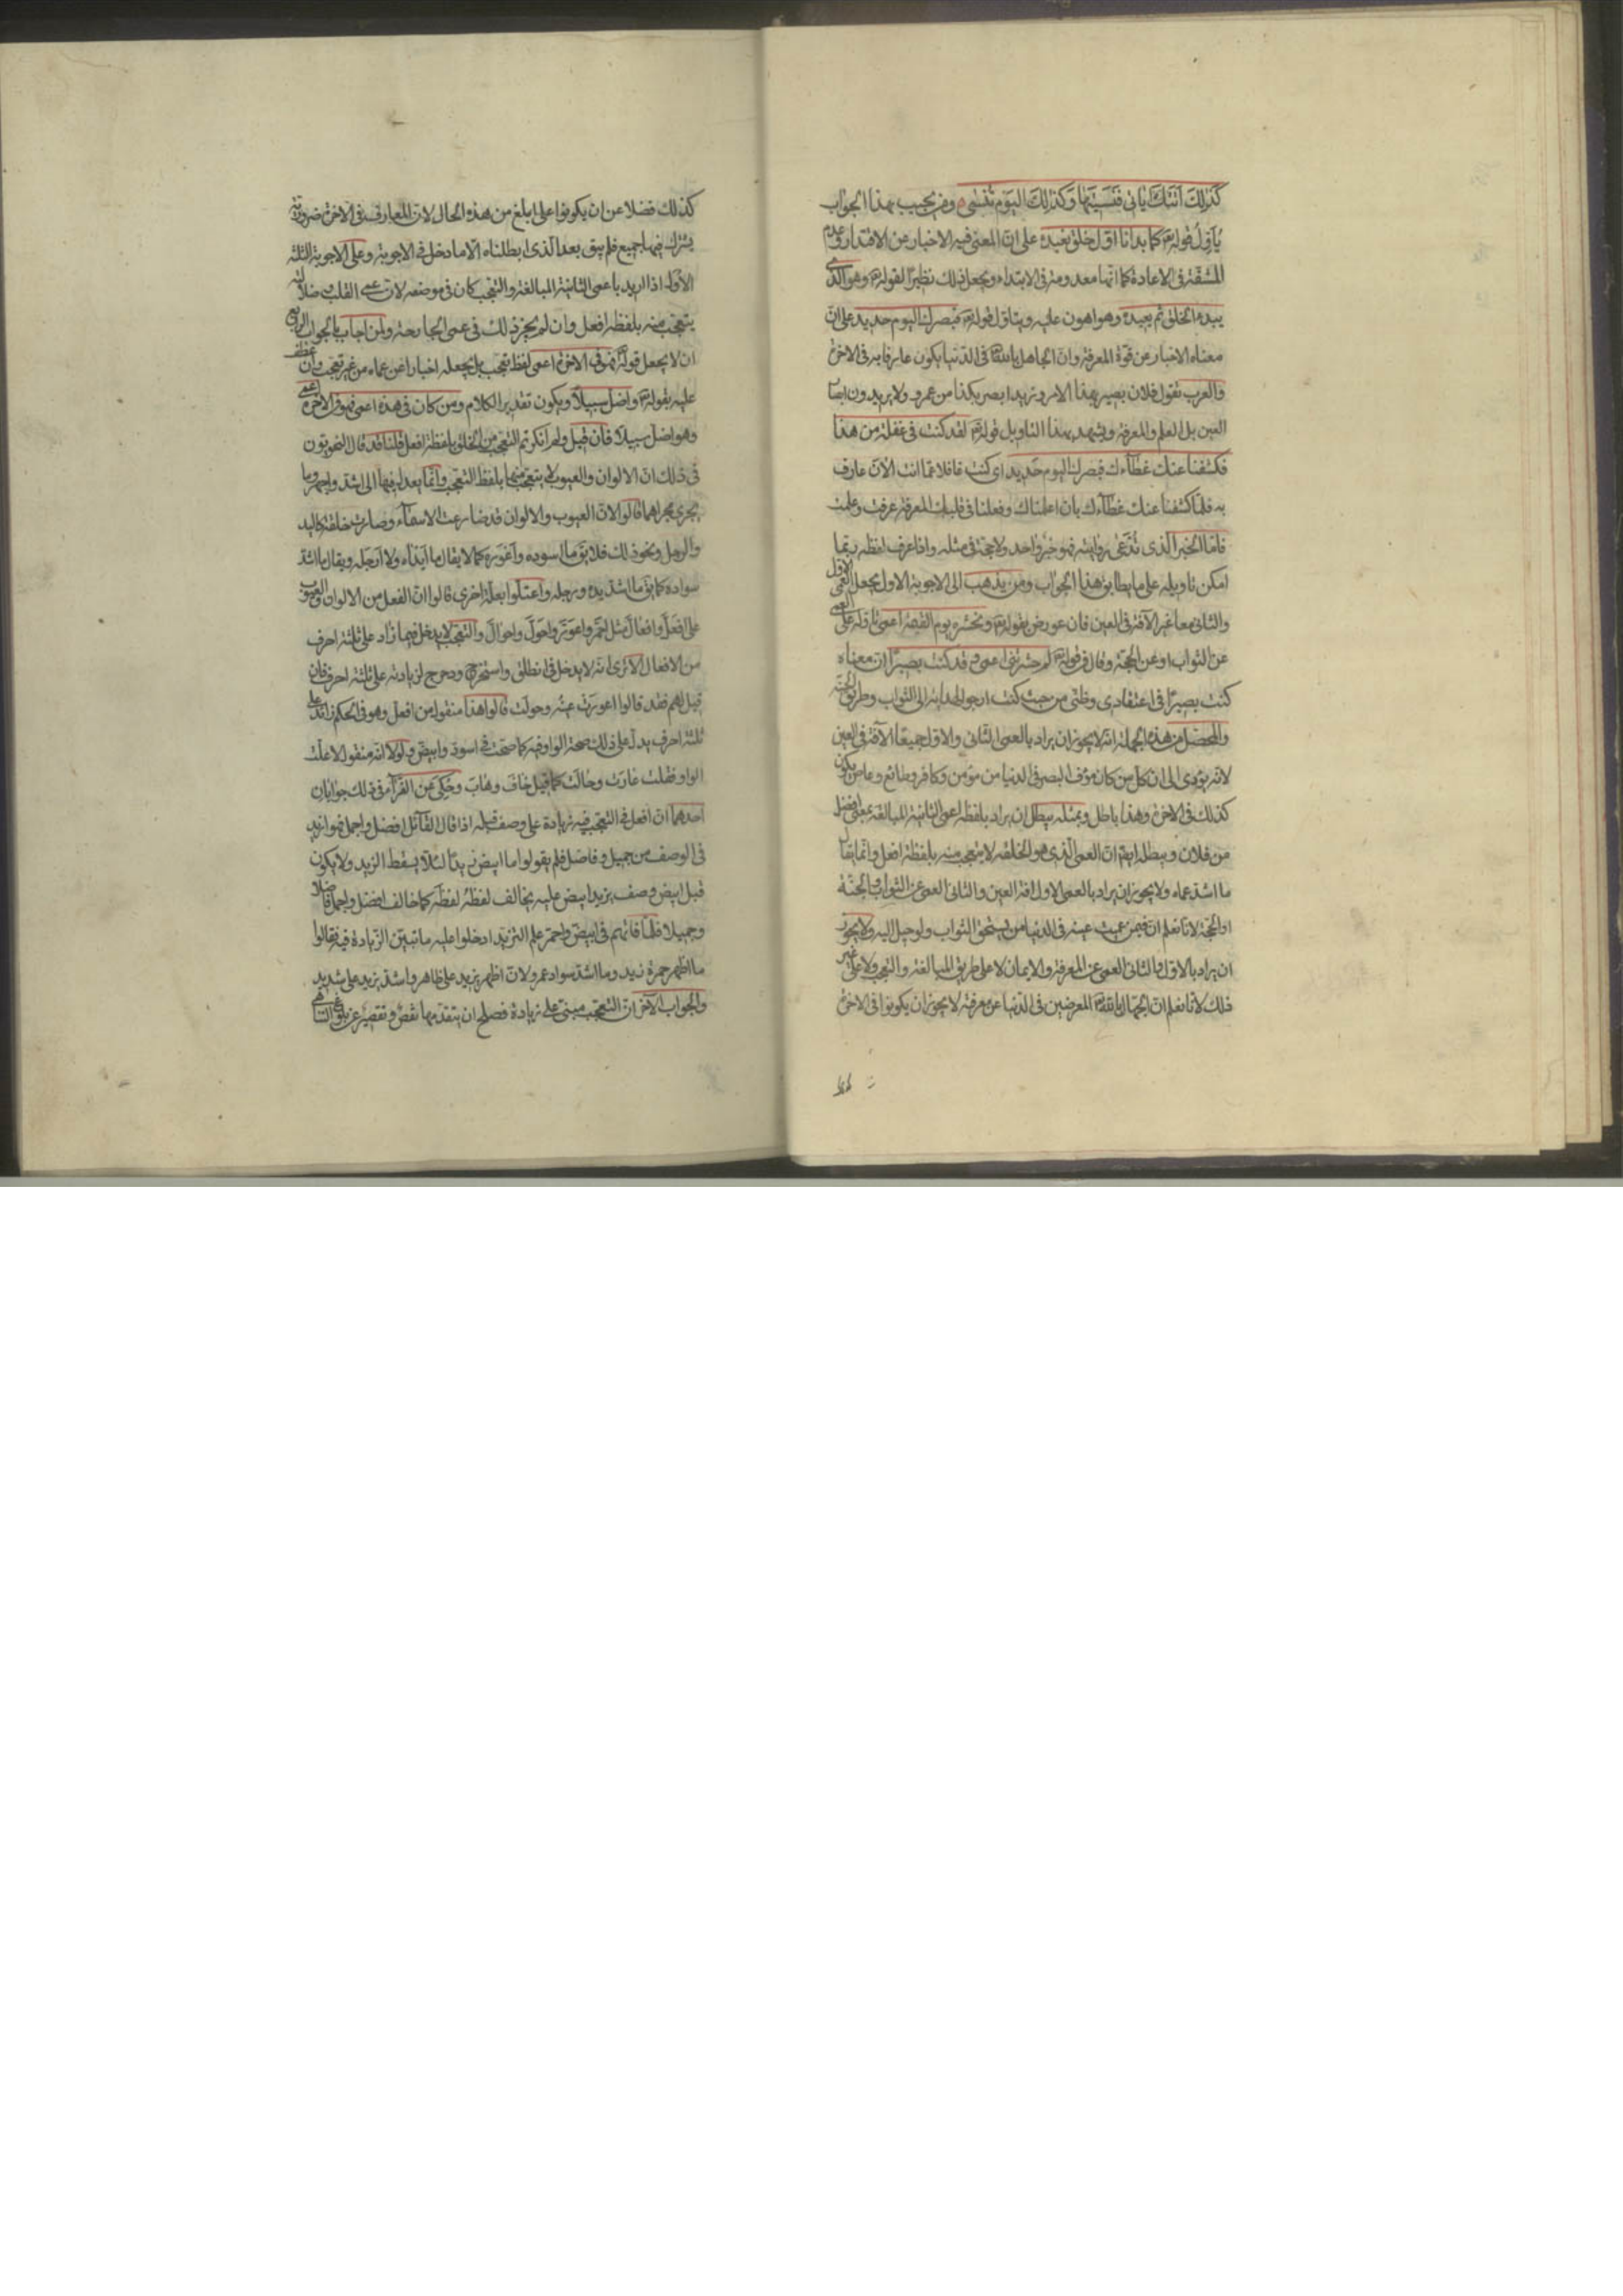 كَذٰلِكَ اَتَتْكَ اٰيَاتُنَا فَنَسِيْتَهَا وَكَذٰلِكَ الْيَوْمَ تُنْسٰى ومن يجيب بهذا الجواب
يتأول قوله كما بدانا اول خلق نعيده على ان المعنى فيه الاخبار عن الاقتدار وعدم
المشقة فى الاعادة كما انها معدومة فى الابتداء ويجعل ذلك نظيرا لقوله وهو الذى
يبدء الخلق ثم يعيده وهو اهون عليه ويتاول قوله فبصرك اليوم حديد على ان
معناه الاخبار عن قوة المعرفة وان الجاهل بالله فى الدنيا يكون عارفا به فى الاخرة
والعرب تقول فلان بصير بهذا الامر وزيد ابصر بكذا من عمرو ولا يريدون ابصار
العين بل العلم والمعرفة ويشهد بهذا التاويل قوله لقد كنت فى غفلة من هذا
فكشفنا عنك غطآءك فبصرك اليوم حديد اى كنت غافلا عما انت الآن عارف
به فلما كشفنا عنك غطآءك بان اعلمناك وفعلنا فى قلبك المعرفة عرفت وعلمت
فاما الخبر الذى تدّعى روايته فهو خبر واحد ولا حجة فى مثله واذا عرف لفظه ربما
امكن تاويله على ما يطابق هذا الجواب ومن يذهب الى الاجوبة الاول يجعل العمى الاول
والثانى معا غير الآفة فى العين فان عورض بقوله ونحشره يوم القيمة اعمى تاوله على العمى
عن الثواب او عن الحجة وقال فى قوله لم حشرتنى اعمى وقد كنت بصيرا ان معناه
كنت بصيرا فى اعتقادى وظنى من حيث كنت ارجو الهداية الى الثواب وطريق الجنة
والمحصل من هذه الجملة انه لا يجوز ان يراد بالعمى الثانى والاول جميعا الآفة فى العين
لانه يؤدى الى ان كل من كان مؤف البصر فى الدنيا من مؤمن وكافر وطائع وعاص يكون
كذلك فى الاخرة وهذا باطل وبمثله يبطل ان يراد بلفظه اعمى الثانية المبالغة بمعنى افضل
من فلان ويبطله ايضا ان العمى الذى هو الخلقة لا يتعجب منه بلفظة افعل وانما يقال
ما اشد عماه ولا يجوز ان يراد بالعمى الاول افة العين والثانى العمى عن الثواب والجنة
او الحجة لانا نعلم ان فيمن عميت عينه فى الدنيا من يستحق الثواب ولوحيل اليه ولا يجوز
ان يراد بالاول والثانى العمى عن المعرفة والايمان لا على طريق المبالغة والتعجب ولا على غير
ذلك لانا نعلم ان الجهال بالله المعرضين فى الدنيا عن معرفته لا يجوز ان يكونوا فى الاخرة
كذلك فضلا عن ان يكونوا على ابلغ من هذه الحال لان المعارف فى الاخرة ضرورية
يشترك فيها الجميع فلم يبق بعد الذى ابطلناه الا ما دخل فى الاجوبة وعلى الاجوبة الثلثة
الاول اذا اريد باعمى الثانية المبالغة والتعجب كان فى موضعه لان عمى القلب وضلاله
يتعجب منه بلفظه افعل وان لم يجز ذلك فى عمى الجارحة ولمن اجاب بالجواب الرابع
ان لا يجعل قوله فهو فى الاخرة اعمى لفظ تعجب بل يجعله اخبارا عن عماه من غير تعجب وان عطف
عليه بقوله واضل سبيلا ويكون تقدير الكلام ومن كان فى هذه اعمى فهو فى الاخرة اعمى
وهو اضل سبيلا فان قيل ولم انكرتم التعجب من الخلق بلفظة افعل قلنا قد قال النحويون
فى ذلك ان الالوان والعيوب لا يتعجب منها بلفظ التعجب وانما يعدل فيها الى اشد واظهر وما
يجرى مجراهما قالوا لان العيوب والالوان قد ضارعت الاسمآء وصارت خلقة كاليد
والرجل ونحو ذلك فلا يق ما اسوده واعوره كما لا يقال ما ايداه ولا ارجله ويقال ما اشد
سواده كما يق ما اشد يده ورجله واعتلوا بعلة اخرى قالوا ان الفعل من الالوان والعيوب
على افعلّ وافعالّ مثل احمرّ واعورّ واحولّ واحوالّ والتعجب لا يدخل فيما زاد على ثلثة احرف
من الافعال الا ترى انه لا يدخل فى انطلق واستخرج ودحرج لزيادته على ثلثة احرف فان
قيل لهم فقد قالوا اعورت عينه وحولت قالوا هذا منقول من افعل وهو فى الحكم زائد على
ثلثة احرف يدل على ذلك صحة الواو فيه كما صحت فى اسود وابيض ولولا انه منقول لاعلت
الواو فقلت عارت وحالت كما قيل خاف وهاب وحكى عن الفرآء فى ذلك جوابان
احدهما ان افعل فى التعجب فيه زيادة على وصف قبله اذا قال القآئل افضل واجمل فهو ازيد
فى الوصف من جميل وفاضل فلم يقولوا ما ابيض زيدا لئلا يسقط التزيد ولا يكون
قبل ابيض وصف يزيد ابيض عليه يخالف لفظه لفظه كما خالف افضل واجمل فاضلا
وجميلا فلما فاتهم فى ابيض واحمر علم التزيد ادخلوا عليه ما تبين الزيادة فيه فقالوا
ما اظهر حمرة زيد وما اشد سواد عمرو لان اظهر يزيد على ظاهر واشد يزيد على شديد
والجواب الآخر ان التعجب مبنى على زيادة فصلح ان يتقدمها نقص وتقصير عن بلوغ التناهى